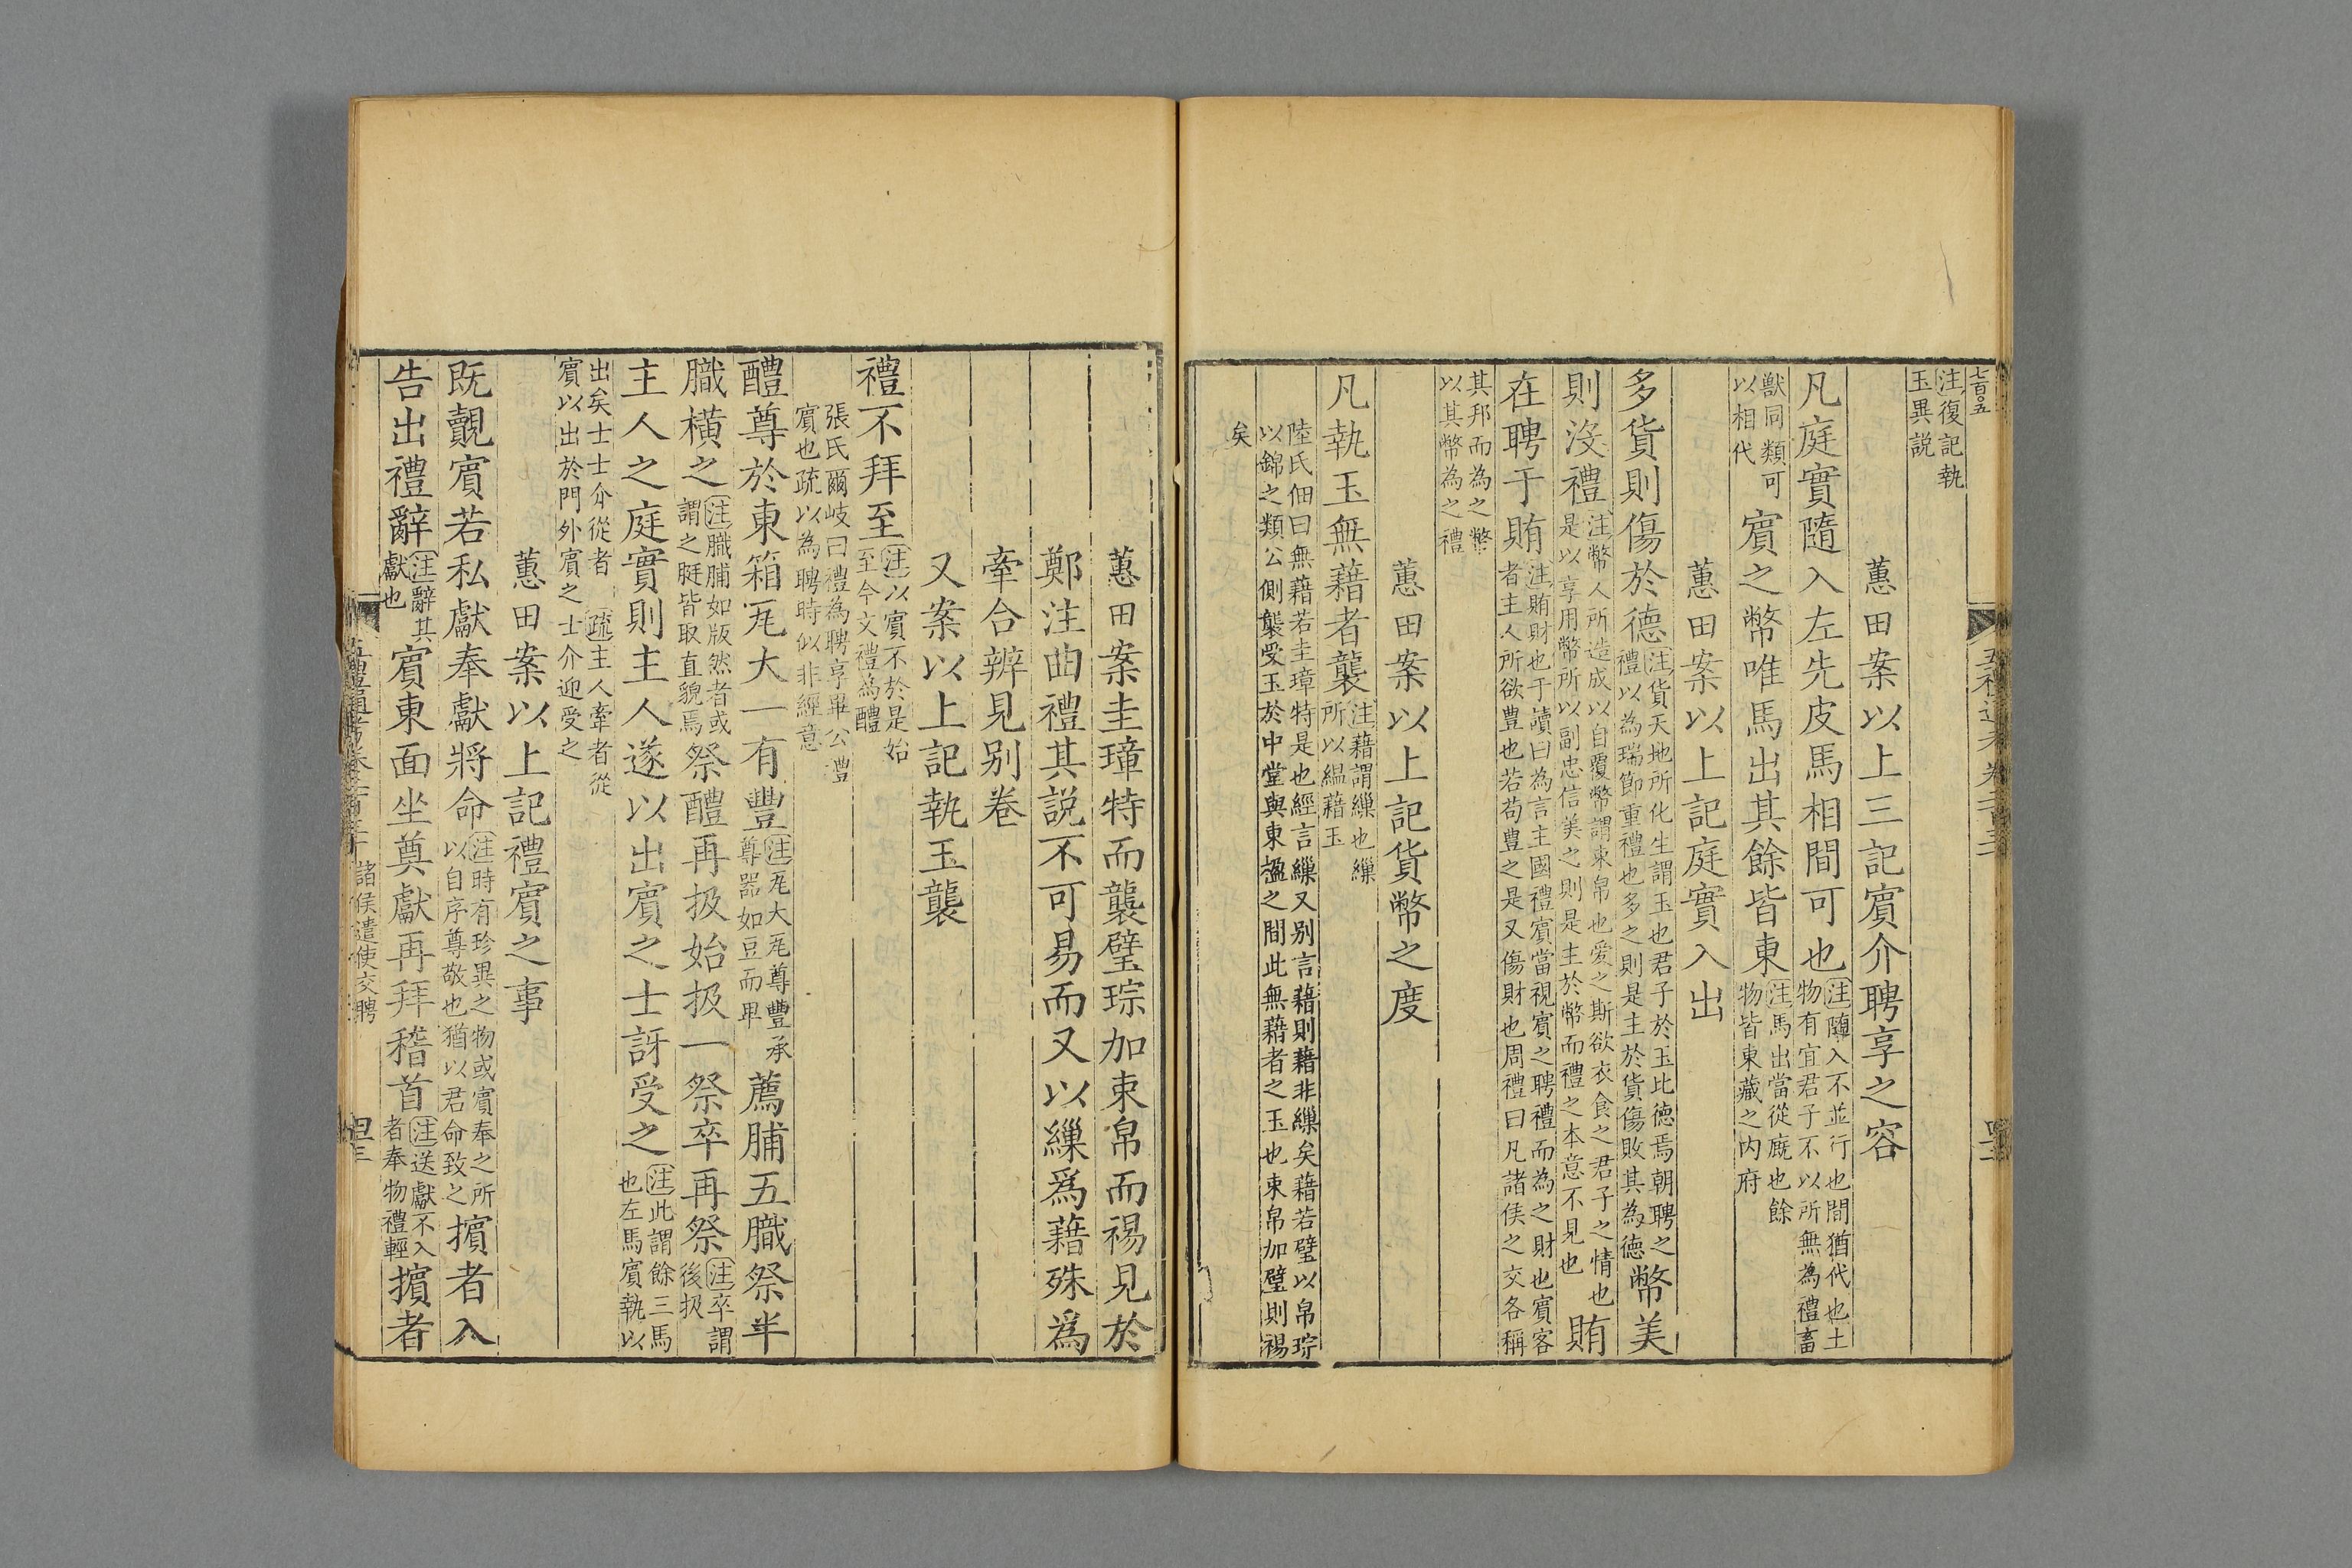 七百○五
注復記執
玉異説
蕙田案以上三記賓介聘享之容
凡庭實隨入左先皮馬相間可也注隨入不並行也間猶代也土
物有宜君子不以所無為禮畜
獸同類可
以相代
賓之幣唯馬出其餘皆東注馬出當從廐也餘
物皆東藏之内府
蕙田案以上記庭實入出
多貨則傷於德注貨天地所化生謂玉也君子於玉比德焉朝聘之
禮以為瑞節重禮也多之則是主於貨傷敗其為德
幣美
則没禮注幣人所造成以自覆幣謂束帛也爱之斯欲衣食之君子之情也
是以享用幣所以副忠信美之則是主於幣而禮之本意不見也
賄
在聘于賄注賄財也于讀曰為言主國禮賓當視賓之聘禮而為之財也賓客
者主人所欲豊也若苟豊之是又傷財也周禮曰凡諸侯之交各稱
其邦而為之幣
以其幣為之禮
蕙田案以上記貨幣之度
凡執玉無藉者襲注藉謂繅也繅
所以緼藉玉
陸氏佃曰無藉若圭璋特是也經言繅又别言藉則藉非繅矣藉若璧以帛琮
以錦之類公側襲受玉於中堂與東楹之間此無藉者之玉也束帛加璧則裼
矣
蕙田案圭璋特而襲璧琮加束帛而裼見於
鄭注曲禮其説不可易而又以繅爲藉殊爲
牽合辨見别卷
又案以上記執玉襲
禮不拜至注以賓不於是始
至今文禮為醴
張氏爾岐曰禮為聘享畢公禮
賓也疏以為聘時似非經意
醴尊於東箱瓦大一有豐注瓦大瓦尊豐承
尊器如豆而卑
薦脯五膱祭半
膱横之注膱脯如版然者或
謂之脡皆取直貌焉
祭醴再扱始扱一祭卒再祭注卒謂
後扱
主人之庭實則主人遂以出賓之士訝受之注此謂餘三馬
也左馬賓執以
出矣士士介從者 疏主人牽者從
賓以出於門外賓之士介迎受之
蕙田案以上記禮賓之事
既覿賓若私獻奉獻將命注時有珍異之物或賓奉之所
以自序尊敬也猶以君命致之
擯者入
告出禮辭注辭其
獻也
賓東面坐奠獻再拜稽首注送獻不入
者奉物禮輕
擯者
諸侯遣使交聘